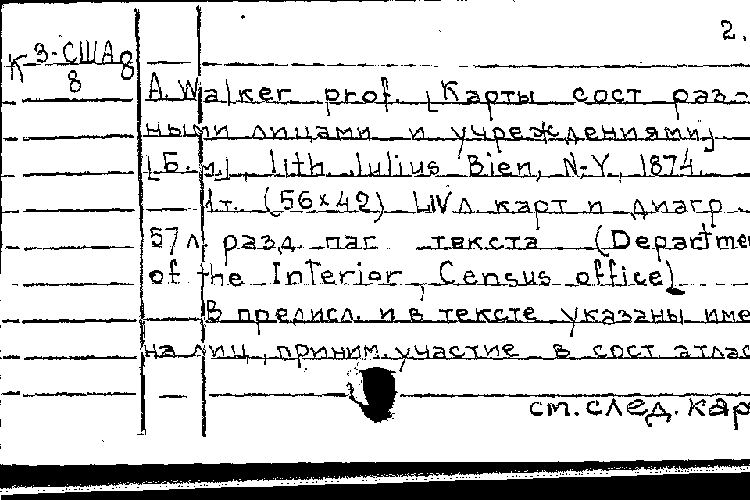 2.
К З-США 8
8
A. Walker prof. [Карты сост раз-
ными лицами и учреждениями]
[Б. м.], lith. Julius Bien, N-Y, 1874.
1т. (56×42) LIV л карт и диагр.
57 л разд. паг текста (Departme
of the Interior, Census office)
В предисл. и в тексте указаны име
на лиц, приним. участие в сост атлас
см. след. кар